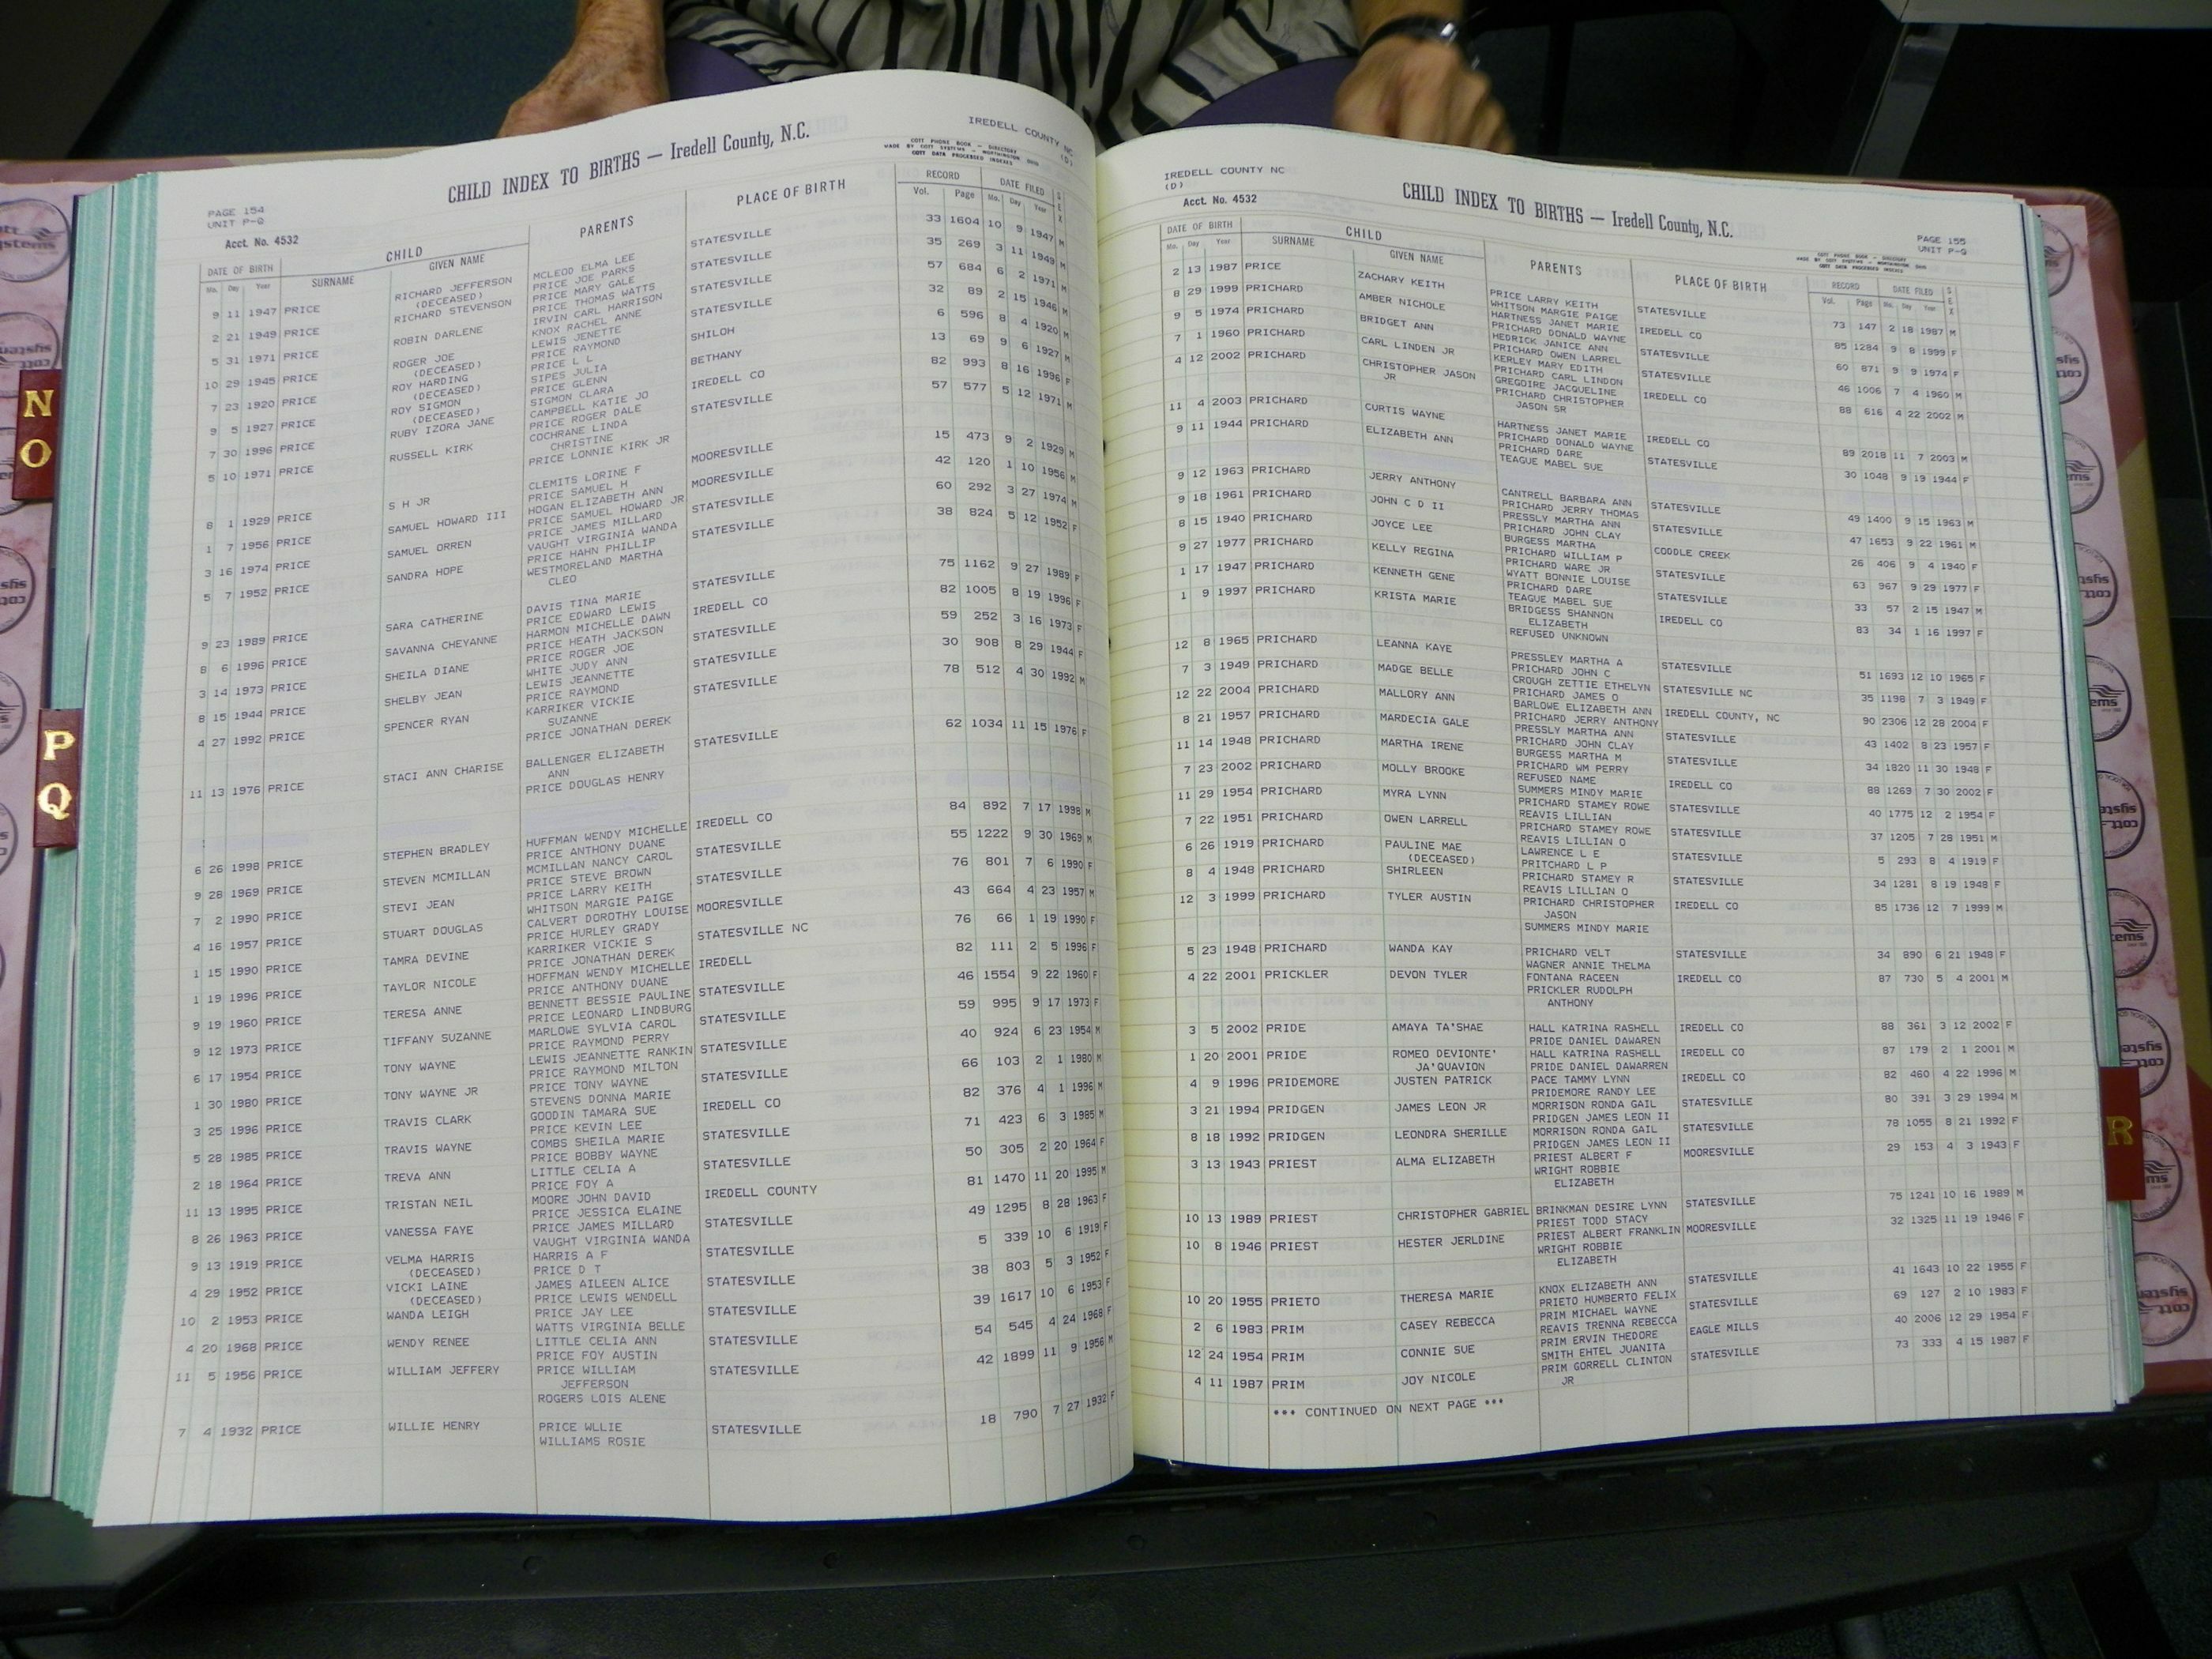 IREDELL COUNTY NC
(D)
CHILD INDEX TO BIRTHS — Iredell County, N.C.
COTT PHONE BOOK — DIRECTORY
MADE BY COTT SYSTEMS — WORTHINGTON OHIO
COTT DATA PROCESSED INDEXES
PAGE 154
UNIT P-Q
Acct. No. 4532
DATE OF BIRTH CHILD PARENTS PLACE OF BIRTH RECORD DATE FILED SEX
Mo. Day Year SURNAME GIVEN NAME Vol. Page Mo. Day Year
9 11 1947 PRICE RICHARD JEFFERSON MCLEOD ELMA LEE STATESVILLE 33 1604 10 9 1947 M
(DECEASED) PRICE JOE PARKS
2 21 1949 PRICE RICHARD STEVENSON PRICE MARY GALE STATESVILLE 35 269 3 11 1949 M
PRICE THOMAS WATTS
5 31 1971 PRICE ROBIN DARLENE IRVIN CARL HARRISON STATESVILLE 57 684 6 2 1971 M
KNOX RACHEL ANNE
10 29 1945 PRICE ROGER JOE LEWIS JENETTE STATESVILLE 32 89 2 15 1946 M
(DECEASED) PRICE RAYMOND
7 23 1920 PRICE ROY HARDING PRICE L L SHILOH 6 596 8 4 1920 M
(DECEASED) SIPES JULIA
9 5 1927 PRICE ROY SIGMON PRICE GLENN BETHANY 13 69 9 6 1927 M
(DECEASED) SIGMON CLARA
7 30 1996 PRICE RUBY IZORA JANE CAMPBELL KATIE JO IREDELL CO 82 993 8 16 1996 F
PRICE ROGER DALE
5 10 1971 PRICE RUSSELL KIRK COCHRANE LINDA STATESVILLE 57 577 5 12 1971 M
CHRISTINE
PRICE LONNIE KIRK JR
8 1 1929 PRICE S H JR CLEMITS LORINE F MOORESVILLE 15 473 9 2 1929 M
PRICE SAMUEL H
1 7 1956 PRICE SAMUEL HOWARD III HOGAN ELIZABETH ANN MOORESVILLE 42 120 1 10 1956 M
PRICE SAMUEL HOWARD JR
3 16 1974 PRICE SAMUEL ORREN PRICE JAMES MILLARD STATESVILLE 60 292 3 27 1974 M
VAUGHT VIRGINIA WANDA
5 7 1952 PRICE SANDRA HOPE PRICE HAHN PHILLIP STATESVILLE 38 824 5 12 1952 F
WESTMORELAND MARTHA
CLEO
9 23 1989 PRICE SARA CATHERINE DAVIS TINA MARIE STATESVILLE 75 1162 9 27 1989 F
PRICE EDWARD LEWIS
8 6 1996 PRICE SAVANNA CHEYANNE HARMON MICHELLE DAWN IREDELL CO 82 1005 8 19 1996 F
PRICE HEATH JACKSON
3 14 1973 PRICE SHEILA DIANE PRICE ROGER JOE STATESVILLE 59 252 3 16 1973 F
WHITE JUDY ANN
8 15 1944 PRICE SHELBY JEAN LEWIS JEANNETTE STATESVILLE 30 908 8 29 1944 F
PRICE RAYMOND
4 27 1992 PRICE SPENCER RYAN KARRIKER VICKIE STATESVILLE 78 512 4 30 1992 M
SUZANNE
PRICE JONATHAN DEREK
11 13 1976 PRICE STACI ANN CHARISE BALLENGER ELIZABETH STATESVILLE 62 1034 11 15 1976 F
ANN
PRICE DOUGLAS HENRY
6 26 1998 PRICE STEPHEN BRADLEY HUFFMAN WENDY MICHELLE IREDELL CO 84 892 7 17 1998 M
PRICE ANTHONY DUANE
9 28 1969 PRICE STEVEN MCMILLAN MCMILLAN NANCY CAROL STATESVILLE 55 1222 9 30 1969 M
PRICE STEVE BROWN
7 2 1990 PRICE STEVI JEAN PRICE LARRY KEITH STATESVILLE 76 801 7 6 1990 F
WHITSON MARGIE PAIGE
4 16 1957 PRICE STUART DOUGLAS CALVERT DOROTHY LOUISE MOORESVILLE 43 664 4 23 1957 M
PRICE HURLEY GRADY
1 15 1990 PRICE TAMRA DEVINE KARRIKER VICKIE S STATESVILLE NC 76 66 1 19 1990 F
PRICE JONATHAN DEREK
1 19 1996 PRICE TAYLOR NICOLE HOFFMAN WENDY MICHELLE IREDELL 82 111 2 5 1996 F
PRICE ANTHONY DUANE
9 19 1960 PRICE TERESA ANNE BENNETT BESSIE PAULINE STATESVILLE 46 1554 9 22 1960 F
PRICE LEONARD LINDBURG
9 12 1973 PRICE TIFFANY SUZANNE MARLOWE SYLVIA CAROL STATESVILLE 59 995 9 17 1973 F
PRICE RAYMOND PERRY
6 17 1954 PRICE TONY WAYNE LEWIS JEANNETTE RANKIN STATESVILLE 40 924 6 23 1954 M
PRICE RAYMOND MILTON
1 30 1980 PRICE TONY WAYNE JR PRICE TONY WAYNE STATESVILLE 66 103 2 1 1980 M
STEVENS DONNA MARIE
3 25 1996 PRICE TRAVIS CLARK GOODIN TAMARA SUE IREDELL CO 82 376 4 1 1996 M
PRICE KEVIN LEE
5 28 1985 PRICE TRAVIS WAYNE COMBS SHEILA MARIE STATESVILLE 71 423 6 3 1985 M
PRICE BOBBY WAYNE
2 18 1964 PRICE TREVA ANN LITTLE CELIA A STATESVILLE 50 305 2 20 1964 F
PRICE FOY A
11 13 1995 PRICE TRISTAN NEIL MOORE JOHN DAVID IREDELL COUNTY 81 1470 11 20 1995 M
PRICE JESSICA ELAINE
8 26 1963 PRICE VANESSA FAYE PRICE JAMES MILLARD STATESVILLE 49 1295 8 28 1963 F
VAUGHT VIRGINIA WANDA
9 13 1919 PRICE VELMA HARRIS HARRIS A F STATESVILLE 5 339 10 6 1919 F
(DECEASED) PRICE D T
4 29 1952 PRICE VICKI LAINE JAMES AILEEN ALICE STATESVILLE 38 803 5 3 1952 F
(DECEASED) PRICE LEWIS WENDELL
10 2 1953 PRICE WANDA LEIGH PRICE JAY LEE STATESVILLE 39 1617 10 6 1953 F
WATTS VIRGINIA BELLE
4 20 1968 PRICE WENDY RENEE LITTLE CELIA ANN STATESVILLE 54 545 4 24 1968 F
PRICE FOY AUSTIN
11 5 1956 PRICE WILLIAM JEFFERY PRICE WILLIAM STATESVILLE 42 1899 11 9 1956 M
JEFFERSON
ROGERS LOIS ALENE
7 4 1932 PRICE WILLIE HENRY PRICE WLLIE STATESVILLE 18 790 7 27 1932 F
WILLIAMS ROSIE
IREDELL COUNTY NC
(D)
Acct. No. 4532
CHILD INDEX TO BIRTHS — Iredell County, N.C.
PAGE 155
UNIT P-Q
COTT PHONE BOOK — DIRECTORY
MADE BY COTT SYSTEMS — WORTHINGTON OHIO
COTT DATA PROCESSED INDEXES
DATE OF BIRTH CHILD PARENTS PLACE OF BIRTH RECORD DATE FILED SEX
Mo. Day Year SURNAME GIVEN NAME Vol. Page Mo. Day Year
2 13 1987 PRICE ZACHARY KEITH PRICE LARRY KEITH STATESVILLE 73 147 2 18 1987 M
WHITSON MARGIE PAIGE
8 29 1999 PRICHARD AMBER NICHOLE HARTNESS JANET MARIE IREDELL CO 85 1284 9 8 1999 F
PRICHARD DONALD WAYNE
9 5 1974 PRICHARD BRIDGET ANN HEDRICK JANICE ANN STATESVILLE 60 871 9 9 1974 F
PRICHARD OWEN LARREL
7 1 1960 PRICHARD CARL LINDEN JR KERLEY MARY EDITH STATESVILLE 46 1006 7 4 1960 M
PRICHARD CARL LINDON
4 12 2002 PRICHARD CHRISTOPHER JASON GREGOIRE JACQUELINE IREDELL CO 88 616 4 22 2002 M
JR PRICHARD CHRISTOPHER
JASON SR
11 4 2003 PRICHARD CURTIS WAYNE HARTNESS JANET MARIE IREDELL CO 89 2018 11 7 2003 M
PRICHARD DONALD WAYNE
9 11 1944 PRICHARD ELIZABETH ANN PRICHARD DARE STATESVILLE 30 1048 9 19 1944 F
TEAGUE MABEL SUE
9 12 1963 PRICHARD JERRY ANTHONY CANTRELL BARBARA ANN STATESVILLE 49 1400 9 15 1963 M
PRICHARD JERRY THOMAS
9 18 1961 PRICHARD JOHN C D II PRESSLY MARTHA ANN STATESVILLE 47 1653 9 22 1961 M
PRICHARD JOHN CLAY
8 15 1940 PRICHARD JOYCE LEE BURGESS MARTHA CODDLE CREEK 26 406 9 4 1940 F
PRICHARD WILLIAM P
9 27 1977 PRICHARD KELLY REGINA PRICHARD WARE JR STATESVILLE 63 967 9 29 1977 F
WYATT BONNIE LOUISE
1 17 1947 PRICHARD KENNETH GENE PRICHARD DARE STATESVILLE 33 57 2 15 1947 M
TEAGUE MABEL SUE
1 9 1997 PRICHARD KRISTA MARIE BRIDGESS SHANNON IREDELL CO 83 34 1 16 1997 F
ELIZABETH
REFUSED UNKNOWN
12 8 1965 PRICHARD LEANNA KAYE PRESSLEY MARTHA A STATESVILLE 51 1693 12 10 1965 F
PRICHARD JOHN C
7 3 1949 PRICHARD MADGE BELLE CROUGH ZETTIE ETHELYN STATESVILLE NC 35 1198 7 3 1949 F
PRICHARD JAMES O
12 22 2004 PRICHARD MALLORY ANN BARLOWE ELIZABETH ANN IREDELL COUNTY, NC 90 2306 12 28 2004 F
PRICHARD JERRY ANTHONY
8 21 1957 PRICHARD MARDECIA GALE PRESSLY MARTHA ANN STATESVILLE 43 1402 8 23 1957 F
PRICHARD JOHN CLAY
11 14 1948 PRICHARD MARTHA IRENE BURGESS MARTHA M STATESVILLE 34 1820 11 30 1948 F
PRICHARD WM PERRY
7 23 2002 PRICHARD MOLLY BROOKE REFUSED NAME IREDELL CO 88 1269 7 30 2002 F
SUMMERS MINDY MARIE
11 29 1954 PRICHARD MYRA LYNN PRICHARD STAMEY ROWE STATESVILLE 40 1775 12 2 1954 F
REAVIS LILLIAN
7 22 1951 PRICHARD OWEN LARRELL PRICHARD STAMEY ROWE STATESVILLE 37 1205 7 28 1951 M
REAVIS LILLIAN O
6 26 1919 PRICHARD PAULINE MAE LAWRENCE L E STATESVILLE 5 293 8 4 1919 F
(DECEASED) PRITCHARD L P
8 4 1948 PRICHARD SHIRLEEN PRICHARD STAMEY R STATESVILLE 34 1281 8 19 1948 F
REAVIS LILLIAN O
12 3 1999 PRICHARD TYLER AUSTIN PRICHARD CHRISTOPHER IREDELL CO 85 1736 12 7 1999 M
JASON
SUMMERS MINDY MARIE
5 23 1948 PRICHARD WANDA KAY PRICHARD VELT STATESVILLE 34 890 6 21 1948 F
WAGNER ANNIE THELMA
4 22 2001 PRICKLER DEVON TYLER FONTANA RACEEN IREDELL CO 87 730 5 4 2001 M
PRICKLER RUDOLPH
ANTHONY
3 5 2002 PRIDE AMAYA TA'SHAE HALL KATRINA RASHELL IREDELL CO 88 361 3 12 2002 F
PRIDE DANIEL DAWAREN
1 20 2001 PRIDE ROMEO DEVIONTE' HALL KATRINA RASHELL IREDELL CO 87 179 2 1 2001 M
JA'QUAVION PRIDE DANIEL DAWARREN
4 9 1996 PRIDEMORE JUSTEN PATRICK PACE TAMMY LYNN IREDELL CO 82 460 4 22 1996 M
PRIDEMORE RANDY LEE
3 21 1994 PRIDGEN JAMES LEON JR MORRISON RONDA GAIL STATESVILLE 80 391 3 29 1994 M
PRIDGEN JAMES LEON II
8 18 1992 PRIDGEN LEONDRA SHERILLE MORRISON RONDA GAIL STATESVILLE 78 1055 8 21 1992 F
PRIDGEN JAMES LEON II
3 13 1943 PRIEST ALMA ELIZABETH PRIEST ALBERT F MOORESVILLE 29 153 4 3 1943 F
WRIGHT ROBBIE
ELIZABETH
10 13 1989 PRIEST CHRISTOPHER GABRIEL BRINKMAN DESIRE LYNN STATESVILLE 75 1241 10 16 1989 M
PRIEST TODD STACY
10 8 1946 PRIEST HESTER JERLDINE PRIEST ALBERT FRANKLIN MOORESVILLE 32 1325 11 19 1946 F
WRIGHT ROBBIE
ELIZABETH
10 20 1955 PRIETO THERESA MARIE KNOX ELIZABETH ANN STATESVILLE 41 1643 10 22 1955 F
PRIETO HUMBERTO FELIX
2 6 1983 PRIM CASEY REBECCA PRIM MICHAEL WAYNE STATESVILLE 69 127 2 10 1983 F
REAVIS TRENNA REBECCA
12 24 1954 PRIM CONNIE SUE PRIM ERVIN THEDORE EAGLE MILLS 40 2006 12 29 1954 F
SMITH EHTEL JUANITA
4 11 1987 PRIM JOY NICOLE PRIM GORRELL CLINTON STATESVILLE 73 333 4 15 1987 F
JR
*** CONTINUED ON NEXT PAGE ***
N
O
P
Q
R